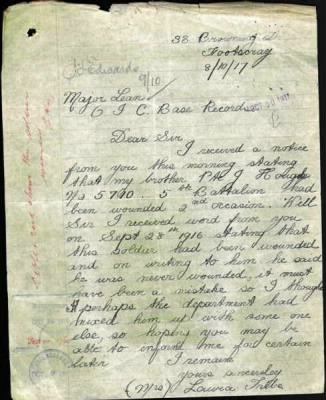 38 Browning St
Footscray
8/10/17
9/10
Major Lean
O I C. Base Records
Dear Sir
I received a notice
from you this morning stating
that my brother Pte J H
No 5740 .. 5th Battalion had
been wounded 2nd occasion. Well
Sir I received word from you
on Sept 28th 1916 stating that
this Soldier had been wounded
and on writing to him he said
he was never wounded, it must
have been a mistake so I thought
perhaps the department had
mixed him up with some one
else, so hoping you may be
able to inform me for certain
later I remain
yours sincerely
(Mrs) Laura